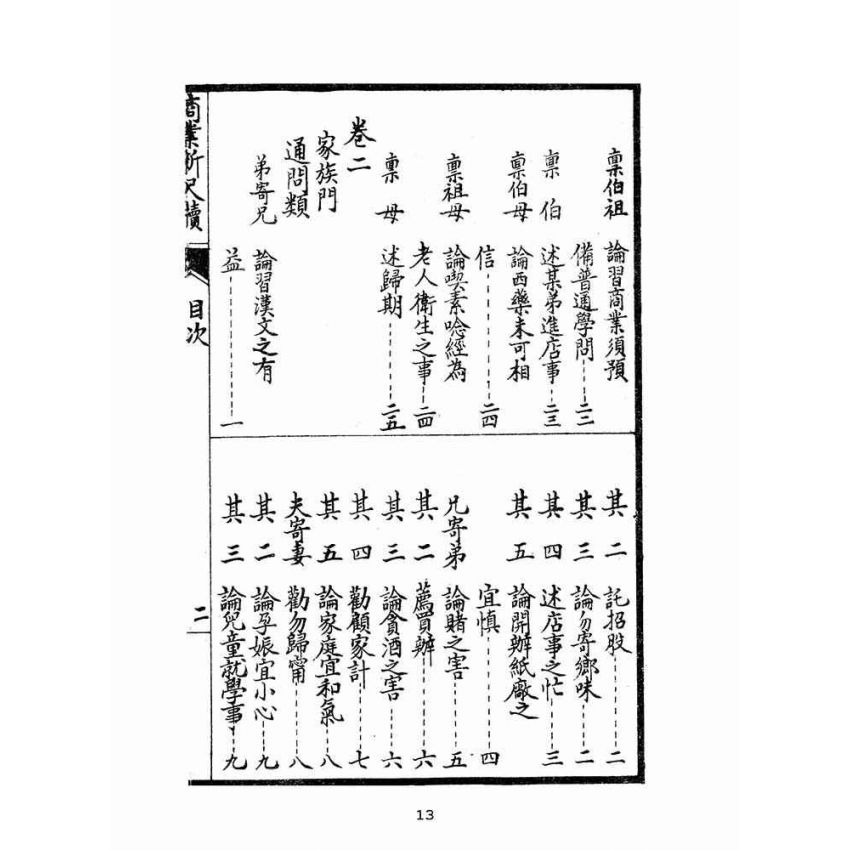 稟伯祖 論習商業須預
備普通學問 二二
稟伯 述某弟進店事 二三
稟伯母 論西藥未可相
信 二四
稟祖母 論喫素唸經為
老人衛生之事 二四
稟母 述歸期 二五
卷二
家族門
通問類
弟寄兄 論習漢文之有
益 一
其二 託招股 二
其三 論勿寄鄉味 二
其四 述店事之忙 三
其五 論開辦紙廠之
宜慎 四
兄寄弟 論賭之害 五
其二 薦買辦 六
其三 論貪酒之害 六
其四 勸顧家計 七
其五 論家庭宜和氣 八
夫寄妻 勸勿歸甯 八
其二 論孕娠宜小心 九
其三 論兒童就學事 九
商業新尺牘 目次 二
13